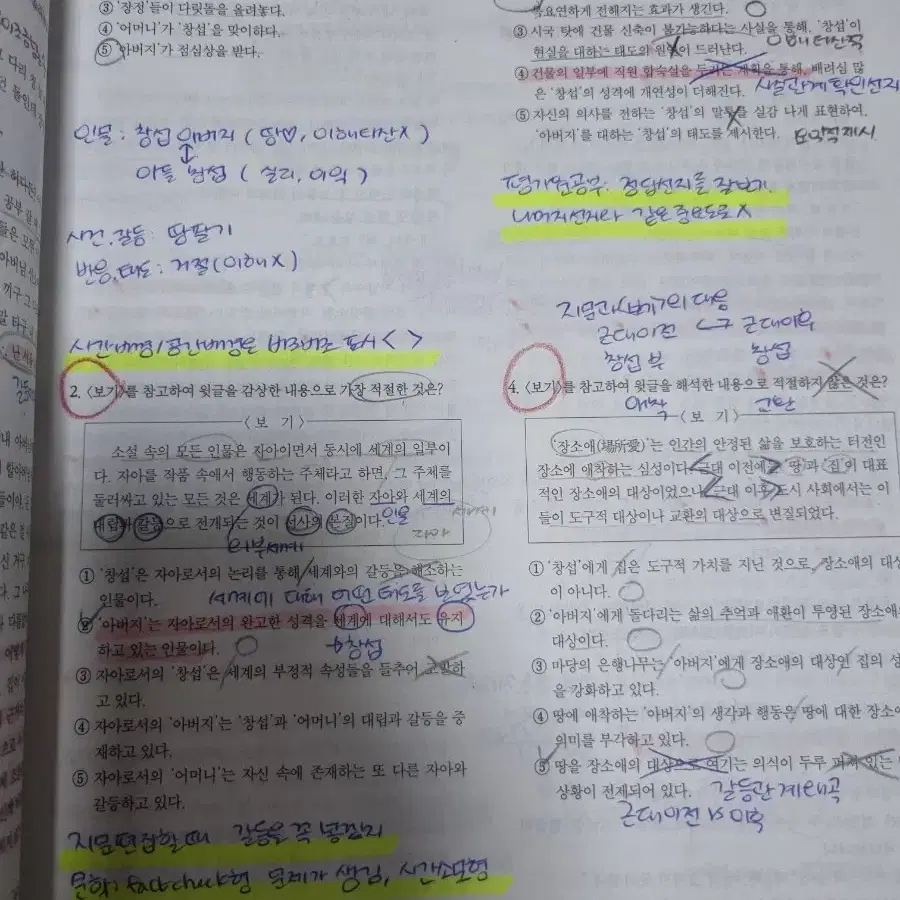 ③ '장정'들이 다릿돌을 올려놓다.
④ '어머니'가 '창섭'을 맞이하다.
⑤ '아버지'가 점심상을 받다.
인물: 창섭 아버지 (땅♡, 이해타산X)
↕
아들 창섭 (실리, 이익)
사건, 갈등: 땅팔기
반응, 태도: 거절(이해X)
시간배경/공간배경은 바로바로 표시 < >
2. <보기>를 참고하여 윗글을 감상한 내용으로 가장 적절한 것은?
<보 기>
소설 속의 모든 인물은 자아이면서 동시에 세계의 일부이
다. 자아를 작품 속에서 행동하는 주체라고 하면, 그 주체를
둘러싸고 있는 모든 것은 세계가 된다. 이러한 자아와 세계의
대립과 갈등으로 전개되는 것이 서사의 본질이다. 인물
외부세계
① '창섭'은 자아로서의 논리를 통해 세계와의 갈등을 해소하는
인물이다. 세계에 대해 어떤 태도를 보였는가
② '아버지'는 자아로서의 완고한 성격을 세계에 대해서도 유지
하고 있는 인물이다. →창섭
③ 자아로서의 '창섭'은 세계의 부정적 속성들을 들추어 고발하
고 있다.
④ 자아로서의 '아버지'는 '창섭'과 '어머니'의 대립과 갈등을 중
재하고 있다.
⑤ 자아로서의 '어머니'는 자신 속에 존재하는 또 다른 자아와
갈등하고 있다.
지문편집할 때 갈등을 꼭
문학: fact check형 문제가 생김, 시간소모형
욕요연하게 전해지는 효과가 생긴다.
③ 시국 탓에 건물 신축이 불가능하다는 사실을 통해, '창섭'이
현실을 대하는 태도와 원인이 드러난다.
④ 건물의 일부에 직원 합숙실을 두려는 계획을 통해, 배려심 많
은 '창섭'의 성격에 개연성이 더해진다. 사실관계확인선지
⑤ 자신의 의사를 전하는 '창섭'의 말투를 실감 나게 표현하여,
'아버지'를 대하는 '창섭'의 태도를 제시한다. 요약적제시
평가원공부: 정답선지를 잘보기
나머지선지와 같은 중요도로 X
지문과 <보기>의 대응
근대이전 ↔ 근대이후
창섭 부 창섭
4. <보기>를 참고하여 윗글을 해석한 내용으로 적절하지 않은 것은?
애착 교환
<보 기>
'장소애(場所愛)'는 인간의 안정된 삶을 보호하는 터전인
장소에 애착하는 심성이다. 근대 이전에는 땅과 집이 대표
적인 장소애의 대상이었으나 근대 이후 도시 사회에서는 이
들이 도구적 대상이나 교환의 대상으로 변질되었다.
① '창섭'에게 집은 도구적 가치를 지닌 것으로, 장소애의 대상
이 아니다.
② '아버지'에게 돌다리는 삶의 추억과 애환이 투영된 장소애
대상이다.
③ 마당의 은행나무는 '아버지'에게 장소애의 대상인 집의 성
을 강화하고 있다.
④ 땅에 애착하는 '아버지'의 생각과 행동은 땅에 대한 장소애
의미를 부각하고 있다.
⑤ 땅을 장소애의 대상으로 여기는 의식이 두루 퍼져 있는
상황이 전제되어 있다. 갈등관계왜곡
근대이전 vs 이후